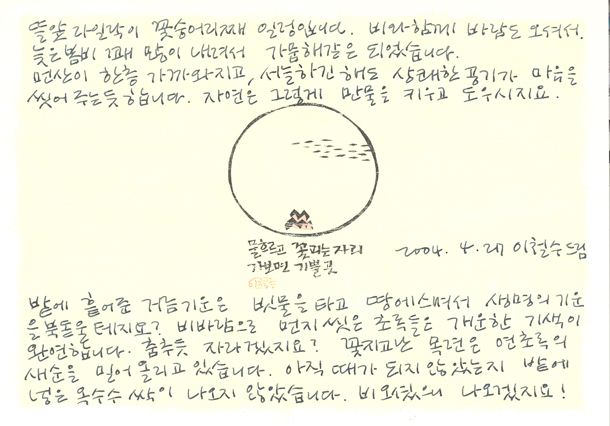 뜰앞 라일락이 꽃숭어리째 일렁입니다. 비와함께 바람도 오셔서.
늦은봄비 꽤 많이 내려서 가뭄해갈은 되었습니다.
먼산이 한층 가까와지고, 서늘하긴 해도 상쾌한 공기가 마음을
씻어 주는듯 합니다. 자연은 그렇게 만물을 키우고 도우시지요.
물흐르고 꽃피는 자리
가보면 기쁠 곳
2004. 4. 27 이철수 드림
밭에 흩어준 거름기운은 빗물을 타고 땅에 스며서 생명의 기운
을 북돋울 테지요? 비바람으로 먼지 씻은 초록들은 개운한 기색이
완연합니다. 춤추듯 자라겠지요? 꽃지고난 목련은 연초록의
새순을 밀어 올리고 있습니다. 아직 때가 되지 않았는지 밭에
넣은 옥수수 싹이 나오지 않았습니다. 비 오셨으니 나오겠지요!